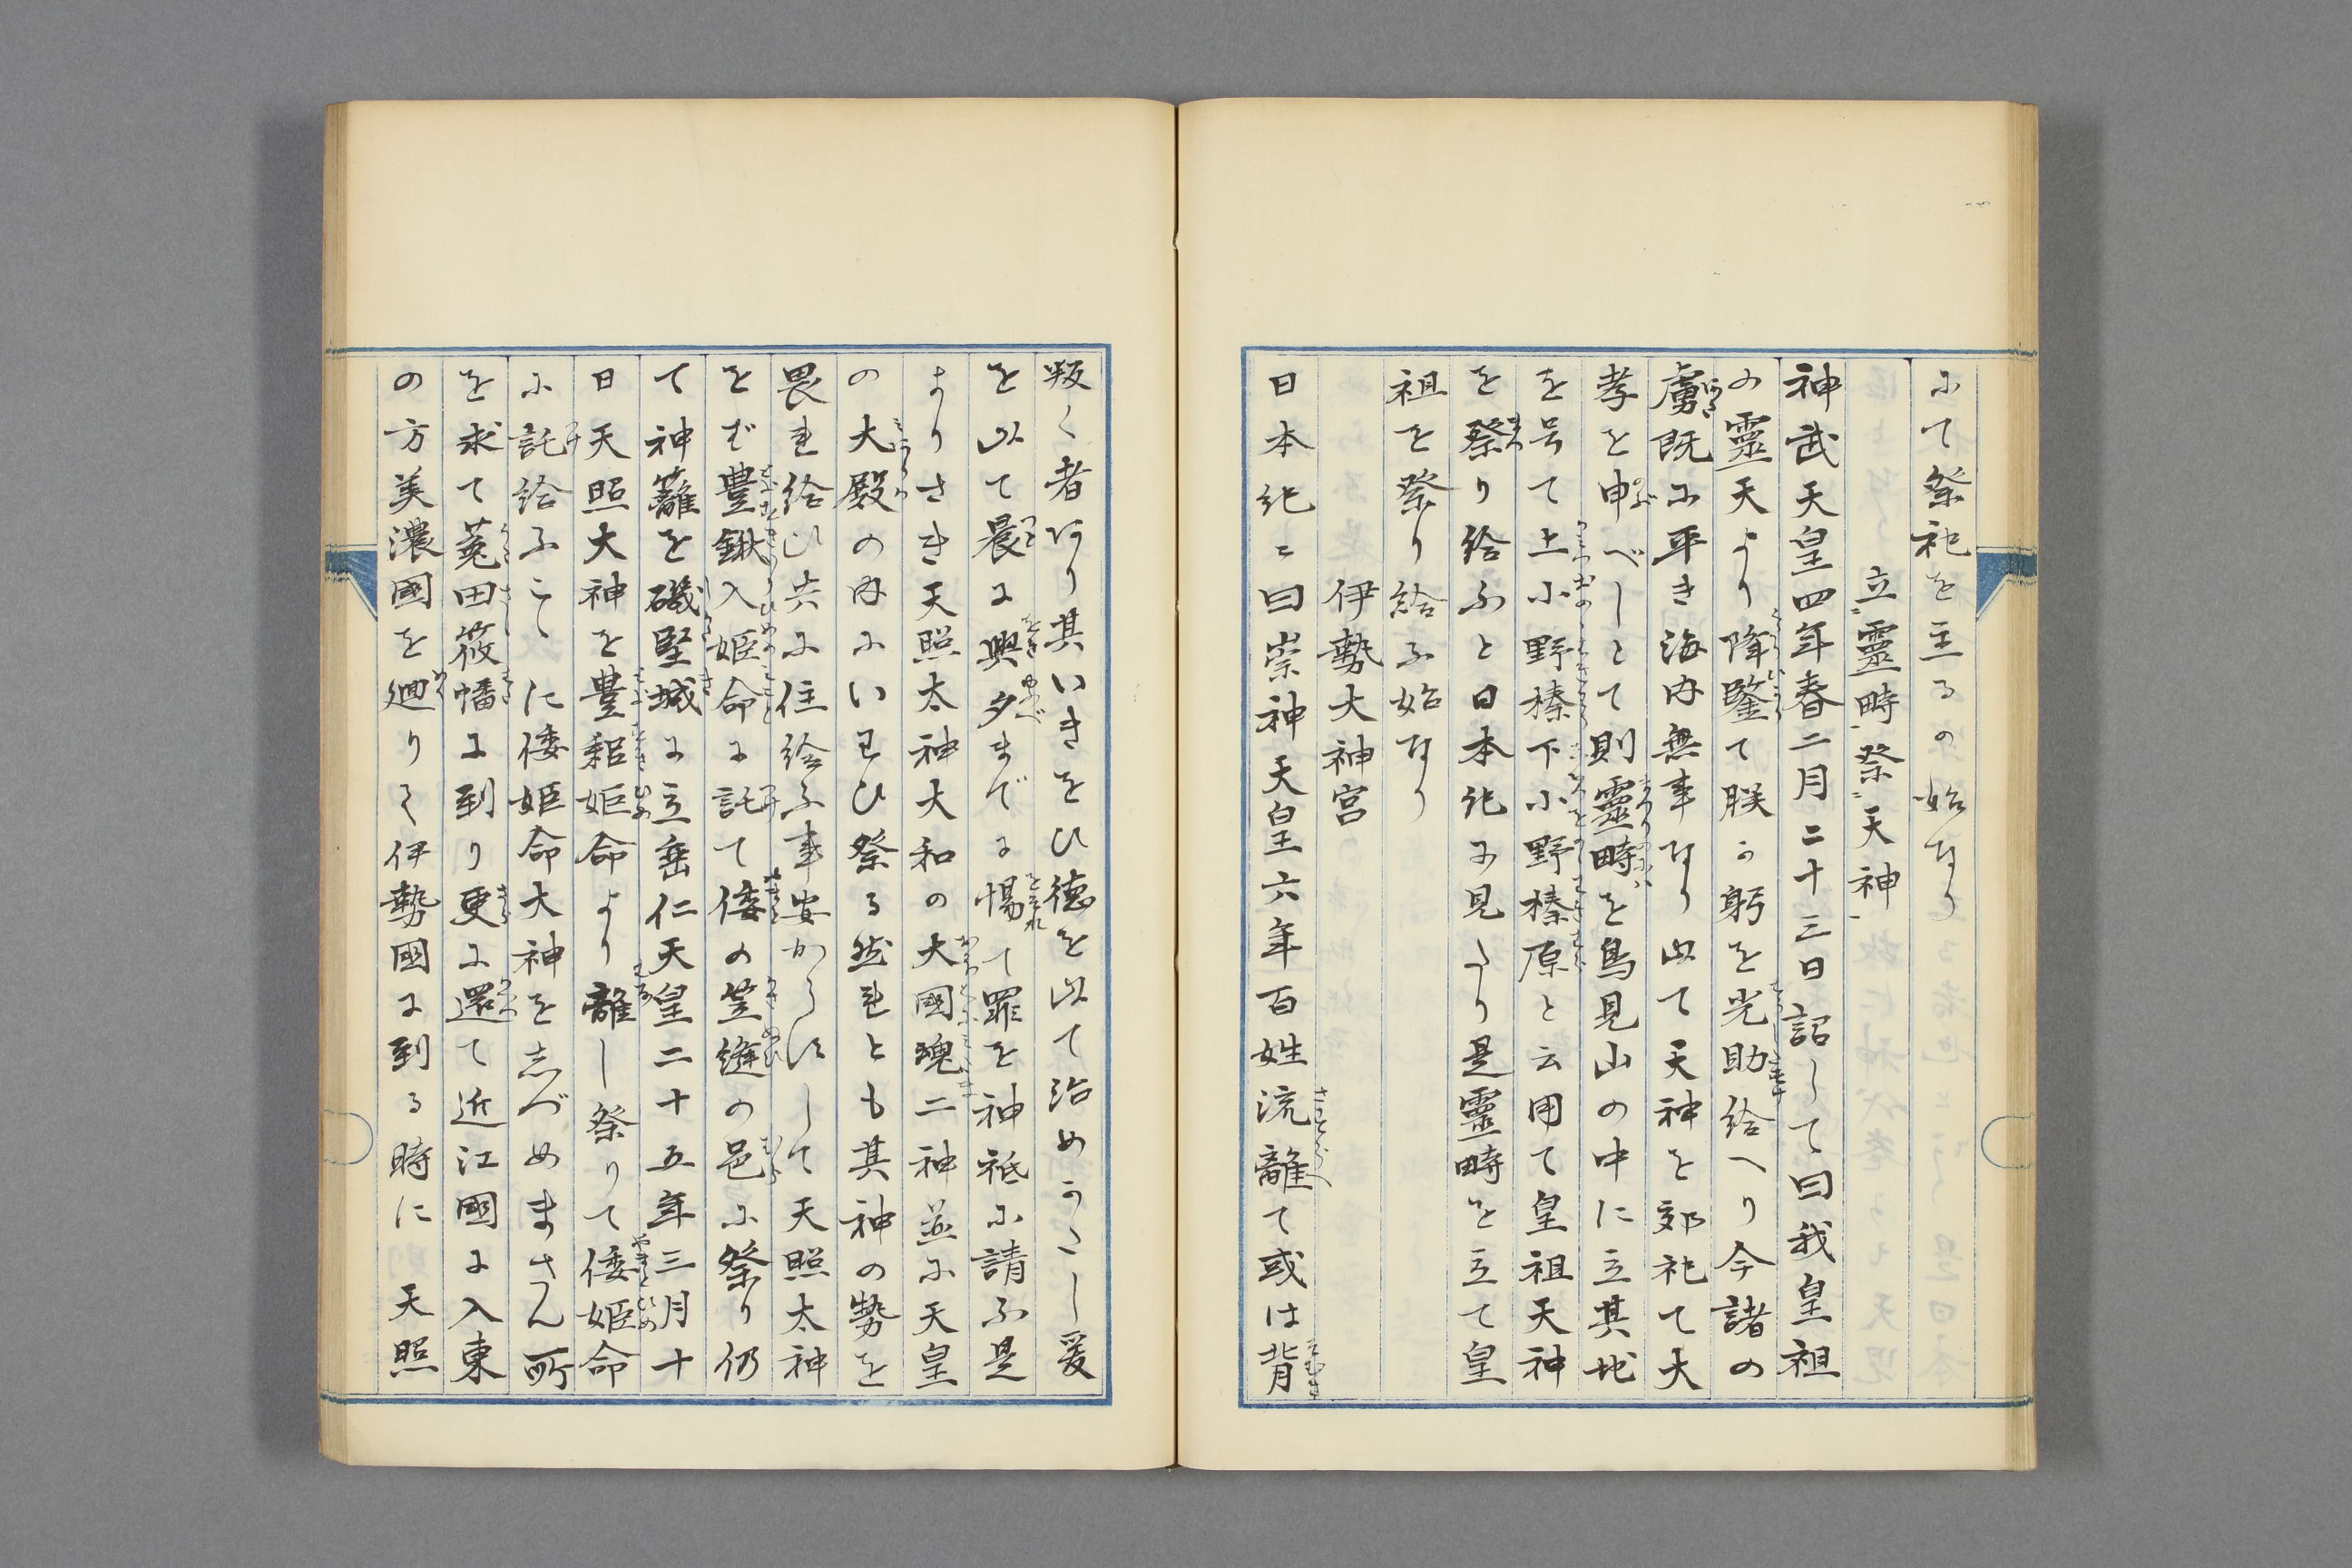 にて祭祀を主るの始なり
立靈畤祭天神
神武天皇四年春二月二十三日詔して曰我皇祖
の靈天より降鑒て朕か躬を光助給へり今諸の
虜既に平き海内無事なり以て天神を郊祀て大
孝を申べしとて則靈畤を鳥見山の中に立其地
を号て上小野榛下小野榛原と云用て皇祖天神
を祭り給ふと日本紀に見たり是靈畤を立て皇
祖を祭り給ふ始なり
伊勢大神宮
日本紀ニ曰崇神天皇六年百姓流離て或は背
叛く者あり其いきをひ徳を以て治めかたし爰
を以て晨に興夕までに惕て罪を神祗に請ふ是
よりさき天照太神大和の大國魂二神並に天皇
の大殿の内にいわひ祭る然れとも其神の勢を
畏れ給ひ共に住給ふ事安からすして天照太神
をば豊鍬入姫命に託て倭の笠縫の邑に祭り仍
て神籬を磯堅城に立垂仁天皇二十五年三月十
日天照大神を豊耜姫命より離し祭りて倭姫命
に託給ふこゝに倭姫命大神を志づめまさん所
を求て菟田筱幡に到り更に還て近江國に入東
の方美濃國を廻りて伊勢國に到る時に 天照